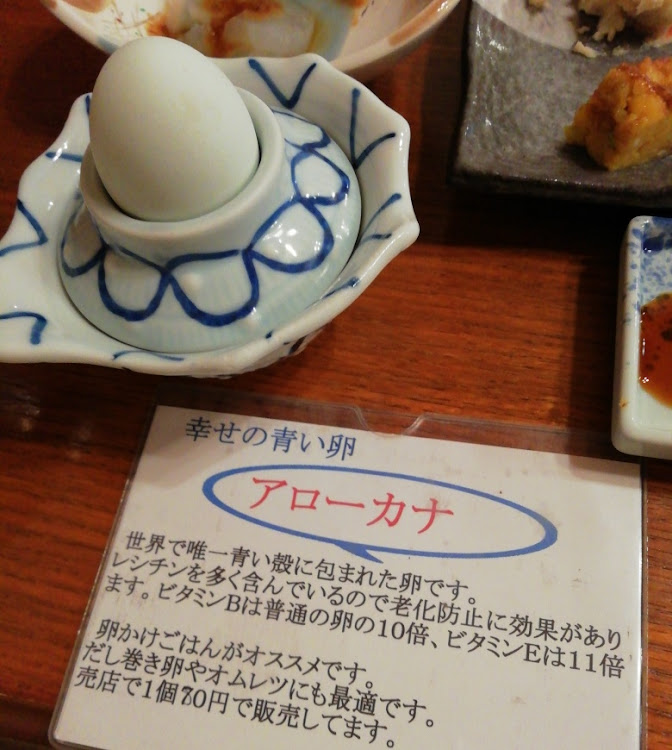 幸せの青い卵
アローカナ
世界で唯一青い殻に包まれた卵です。
レシチンを多く含んでいるので老化防止に効果があり
ます。ビタミンBは普通の卵の10倍、ビタミンEは11倍
卵かけごはんがオススメです。
だし巻き卵やオムレツにも最適です。
売店で1個70円で販売してます。